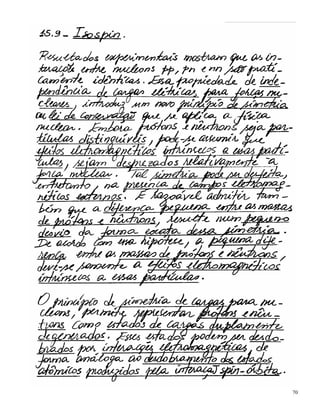 15.9 - Isospin.
Resultados experimentais mostram que as in-
terações entre nucleons pp, pn e nn são prati-
camente idênticas. Essa propriedade de inde-
pendência de cargas elétricas para forças nu-
cleares, introduz um novo princípio de simetria
ou lei de conservação que se aplica a física
nuclear. Embora prótons e nêutrons seja par-
tículas distinguíveis, pode-se assumir que
efeitos eletromagnéticos intrínsecos a essas partí-
culas, sejam desprezados relativamente a
força nuclear. Tal simetria pode ser desfeita,
entretanto, na presença de campos eletromag-
néticos externos. É razoável admitir tam-
bém que a diferença pequena entre as massas
de prótons e nêutrons, resulte num pequeno
desvio da forma exata dessa simetria.
De acordo com essa hipótese, a pequena dife-
rença entre as massas de prótons e nêutrons,
deve-se somente a efeitos eletromagnéticos
intrínsecos a essas partículas.
O princípio de simetria de cargas para nu-
cleons, permite representar prótons e nêu-
trons como estados de cargas duplamente
degenerados. Esses estados podem ser desdo-
brados por interações eletromagnéticas, de
forma análoga ao desdobramento dos estados
atômicos produzidos pela interação spin-órbita.
70